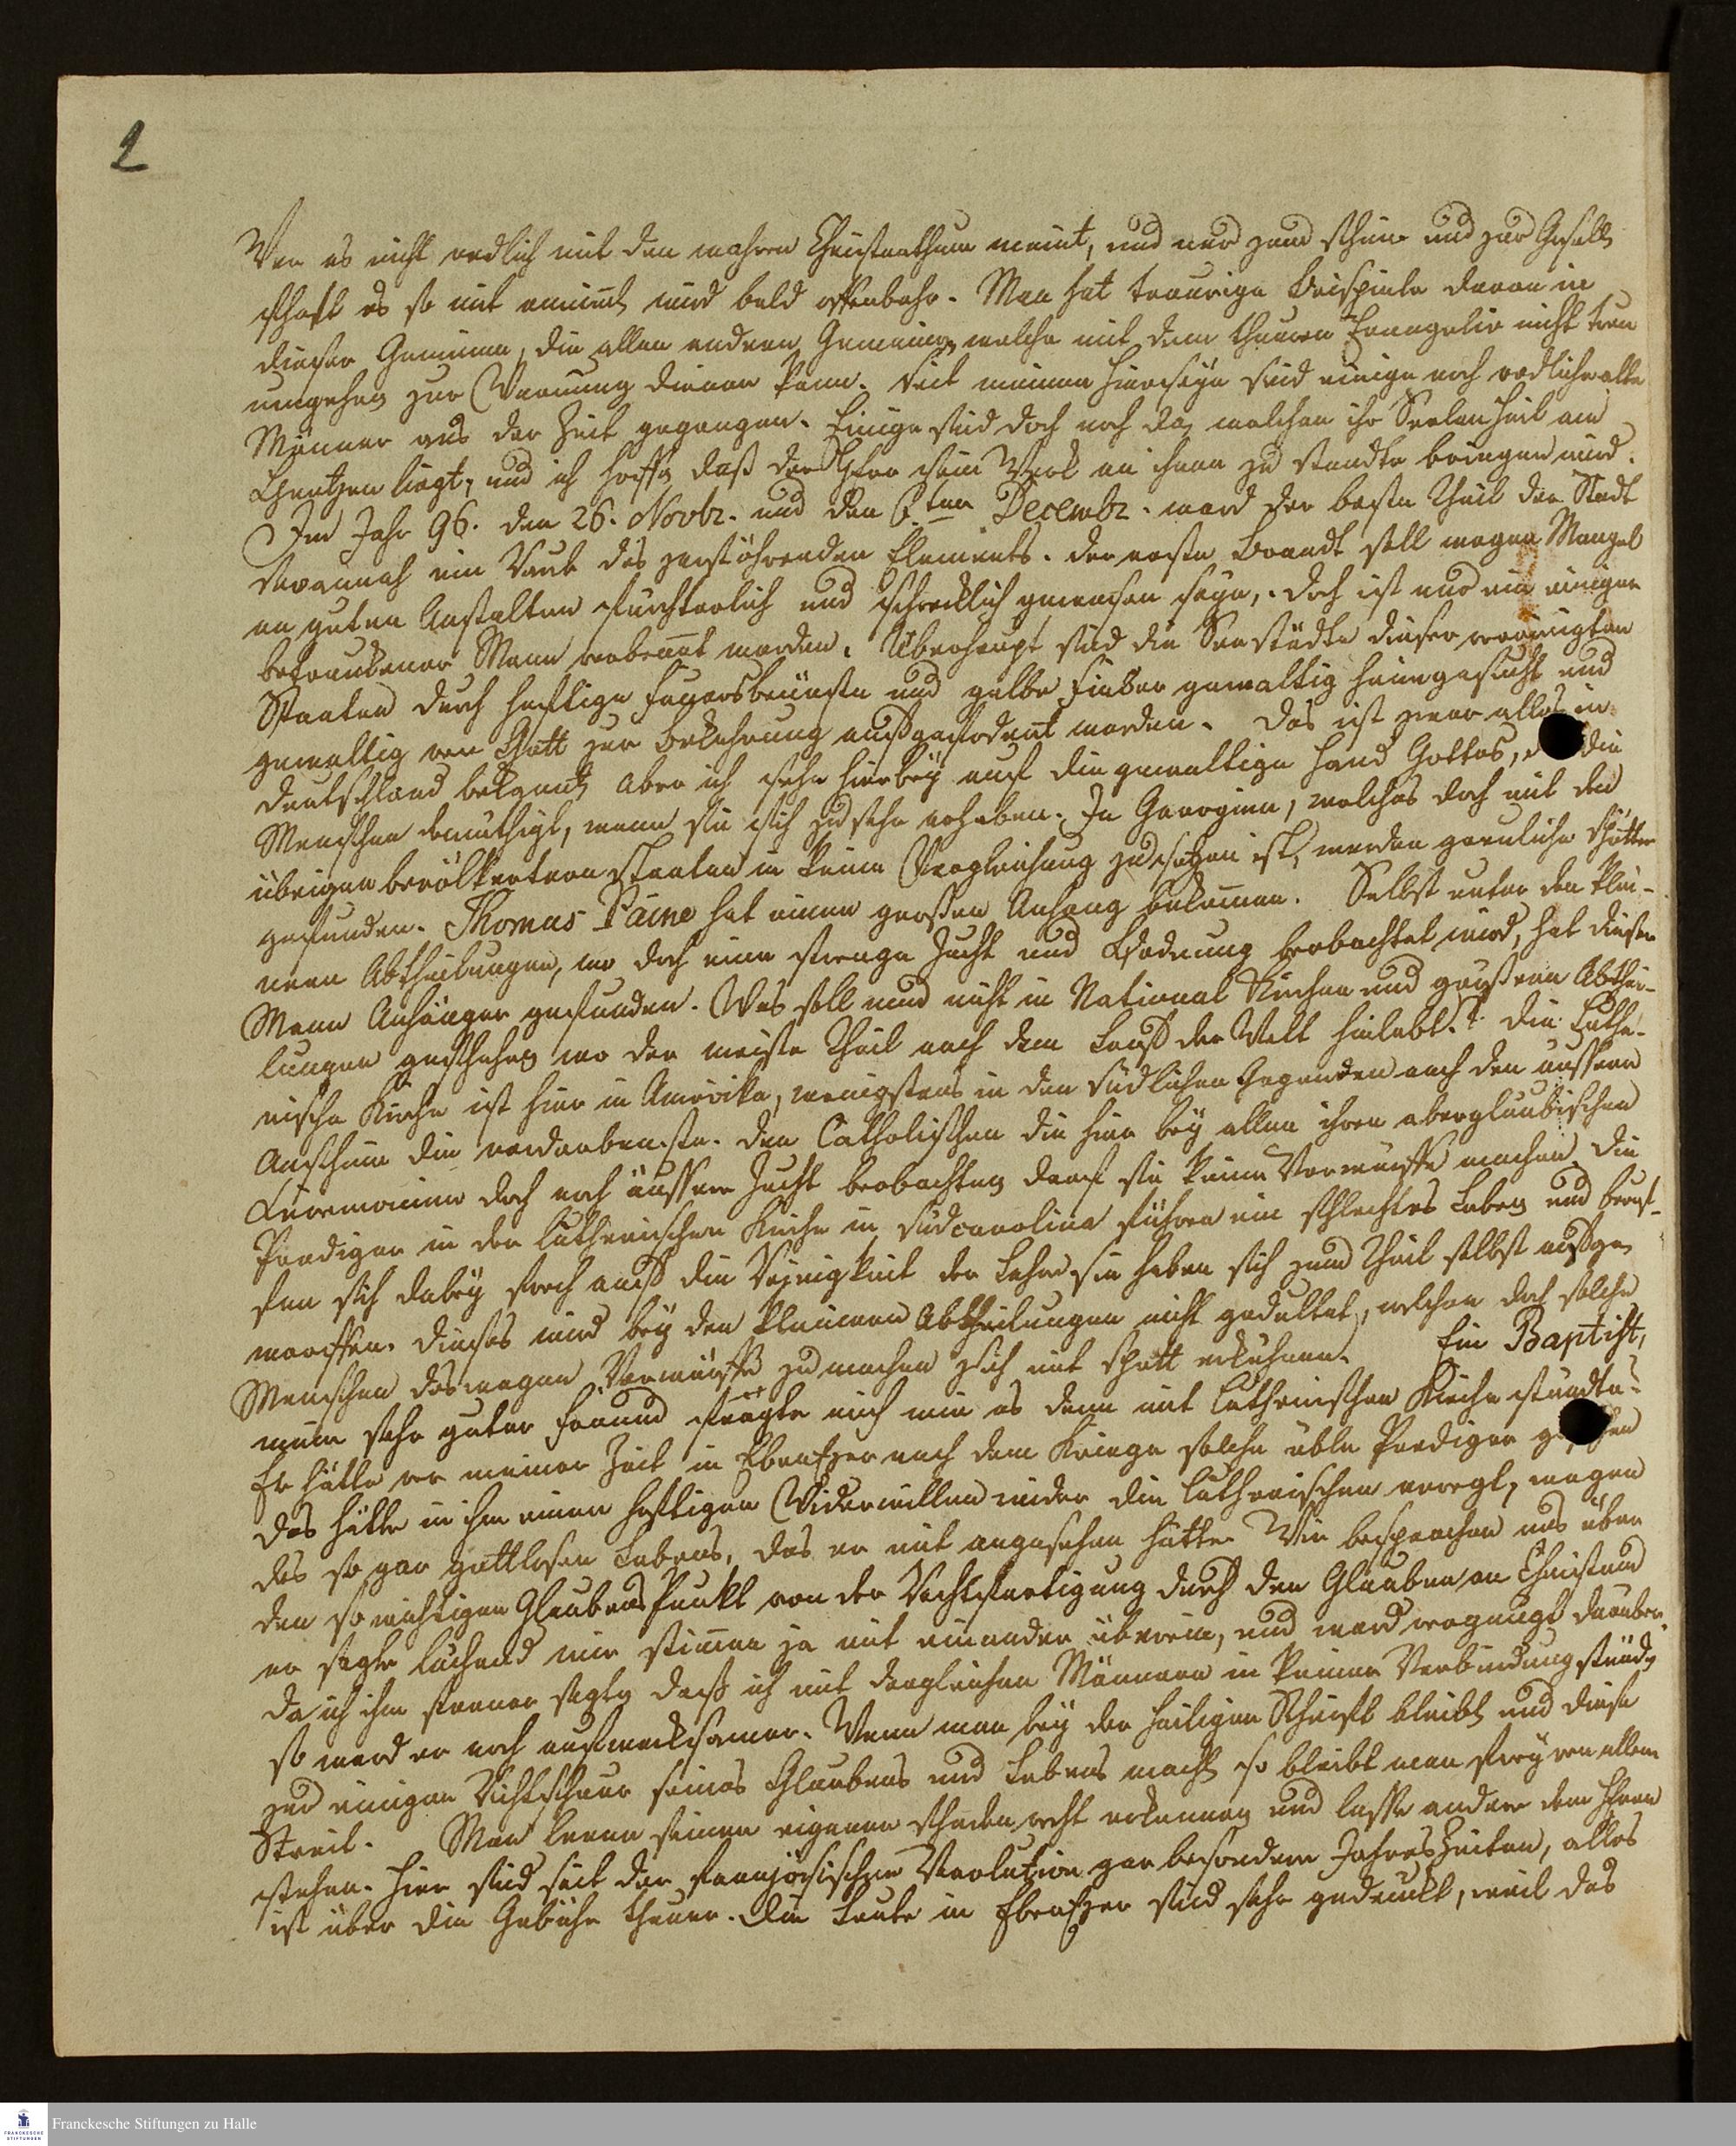 2
Wer es nicht redlich mit den wahren Christenthum meint, und nur zum schein und zur Gesell
schaft es so mit annimt wird bald offenbahr. Man hat traurige Beispiele davon in
dieser Gemeine, die allen andern Gemeinen welche mit dem theuren Evangelio nicht treu
umgehen zur Warnung dienen kann. Seit meinem hierseyn sind einige noch redliche alte
Männer aus der Zeit gegangen. Einige sind doch noch da, welchen ihr Seelen Heil am
Hertzen liegt, und ich hoffe, daß der Herr sein Werk an ihnen zu stande bringen wird.
Im Jahr 96. den 26. Novbr. und den 6ten Decembr. ward der beste Theil der Stadt
Savannah ein Raub des zerstöhrenden Elements. der erste Brandt soll wegen Mangel
an guten Anstalten fürchterlich und schrecklich gewesen seyn, doch ist nur ein einiger
betrunkener Mann verbrannt worden. Überhaupt sind die Seestädte dieser vereinigten
Staaten durch heftige Feuersbrünste und gelbe Fieber gewaltig heimgesucht und
gewaltig von Gott zur Bekehrung aufgefordert worden. Das ist zwar alles in
Deutschland bekannt, aber ich sehe hierbey auf die gewaltige Hand Gottes, die
Menschen demüthigt, wenn sie sich zu sehr erheben. In Georgien, welches doch mit den
übrigen bevölkertern Staaten in keine Vergleichung zu setzen ist, werden greuliche Spötter
gefunden. Thomas Paine hat einen großen Anhang bekommen. Selbst unter den klei-
nern Abtheilungen, wo doch eine strenge Zucht und Ordnung beobachtet wird, hat dieser
Mann Anhänger gefunden. Was soll nun nicht in National Kirchen und großern Abthei-
lungen geschehen wo der meiste Theil nach dem Lauf der Welt hinlebt? die Luthe-
rische Kirche ist hier in America, wenigstens in den südlichen Gegenden nach den äussern
Anschein die verdorbenste. den Catholischen die hier bey allen ihren abergläubischen
Ceremonien doch noch äussere Zucht beobachten darf sie keine Vorwürffe machen. die
Prediger in der lutherischen Kirche in Südcarolina führen ein schlechtes Leben und beruf-
fen sich dabey frech auf die Reinigkeit der Lehre sie haben sich zum Theil selbst aufge-
worffen. dieses wird bey den kleinern Abtheilungen nicht geduldet, welchen doch solche
Menschen deswegen Vorwürffe zu machen sich mit Spott erkühnen. Ein Baptist,
mein sehr guter Freund fragte mich wie es denn mit Lutherischen Kirche stünde?
Er hätte vor meiner Zeit in Ebenezer nach dem Kriege solche üble Prediger gesehen
das hätte in ihm einen heftigen Widerwillen wider die lutherischen erregt, wegen
des so gar gottlosen Lebens, das er mit angesehen hätte. Wir besprachen uns über
den so wichtigen Glaubens Punkt von der Rechtfertigung durch den Glauben an Christum
er sagte lachend wir stimmen ja mit einander überein, und ward vergnügt darüber
da ich ihm ferner sagte daß ich mit dergleichen Männern in keiner Verbindung stünde,
so ward er noch aufmerksamer. Wenn man bey der heiligen Schrift bleibt, und diese
zur einigen Richtschnur seines Glaubens und Lebens macht so bleibt man frey von allem
Streit. Man lerne seinen eigenen Schaden recht erkennen, und lasse andere dem Herrn
stehen. Hier sind seit der französischen Revolution gar besondere JahresZeiten, alles
ist über die Gebühr theuer. Die Leute in Ebenezer sind sehr gedruckt, weil das
Franckesche Stiftungen zu Halle